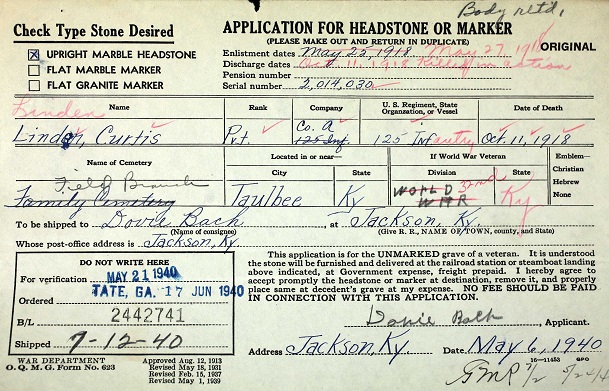 Body retd.
Check Type Stone Desired
APPLICATION FOR HEADSTONE OR MARKER
(PLEASE MAKE OUT AND RETURN IN DUPLICATE)
ORIGINAL
X UPRIGHT MARBLE HEADSTONE
FLAT MARBLE MARKER
FLAT GRANITE MARKER
Enlistment dates May 25, 1918 May 27, 1918
Discharge dates Oct. 11, 1918 Killed in action
Pension number
Serial number 2,014,030
Linden
Name Rank Company U. S. Regiment, State Organization, or Vessel Date of Death
Linden, Curtis Pvt. Co. A 125 Inf. 125 Infantry Oct. 11, 1918
Name of Cemetery Located in or near— If World War Veteran Emblem—
City State Division State Christian
Hebrew
None
Field Branch
Family Cemetery Taulbee Ky WORLD WAR 32nd Ky
To be shipped to Dovie Bach, at Jackson, Ky.
(Name of consignee) (Give R. R., NAME OF TOWN, county, and State)
Whose post-office address is Jackson, Ky.
DO NOT WRITE HERE
For verification MAY 21 1940
Ordered TATE, GA. 17 JUN 1940
B/L 2442741
Shipped 7-12-40
This application is for the UNMARKED grave of a veteran. It is understood
the stone will be furnished and delivered at the railroad station or steamboat landing
above indicated, at Government expense, freight prepaid. I hereby agree to
accept promptly the headstone or marker at destination, remove it, and properly
place same at decedent's grave at my expense. NO FEE SHOULD BE PAID
IN CONNECTION WITH THIS APPLICATION.
Dovie Bach, Applicant.
Address Jackson, Ky. Date May 6, 1940
WAR DEPARTMENT
O. Q. M. G. Form No. 623
Approved Aug. 12, 1913
Revised May 18, 1931
Revised Feb. 15, 1937
Revised May 1, 1939
16—11453 GPO